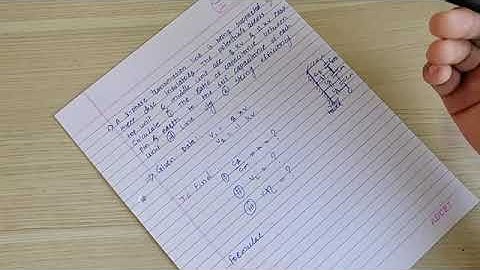 1) A 3-phase transmission line is being supported by
three disc insulators. The potentials across
top unit & middle unit are 8 kV & 11 kV resp.
Calculate ① The ratio of capacitance between
pin & earth to the self capacitance of each
unit ② Line Vg ③ String efficiency
→ Given Data:- V1 = 8 kV
V2 = 11 kV
To Find
① = ?
② VL = ?
③ % η = ?
Formulae